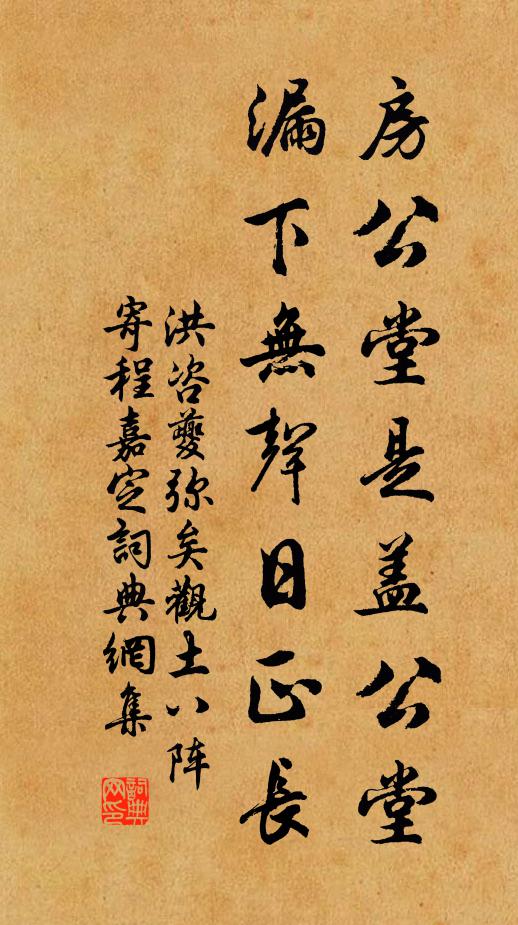 房公堂是盖公堂
漏下無聲日正長
洪咨夔弥矣觀土八阵
寄程嘉定詞典網集
詞典網印